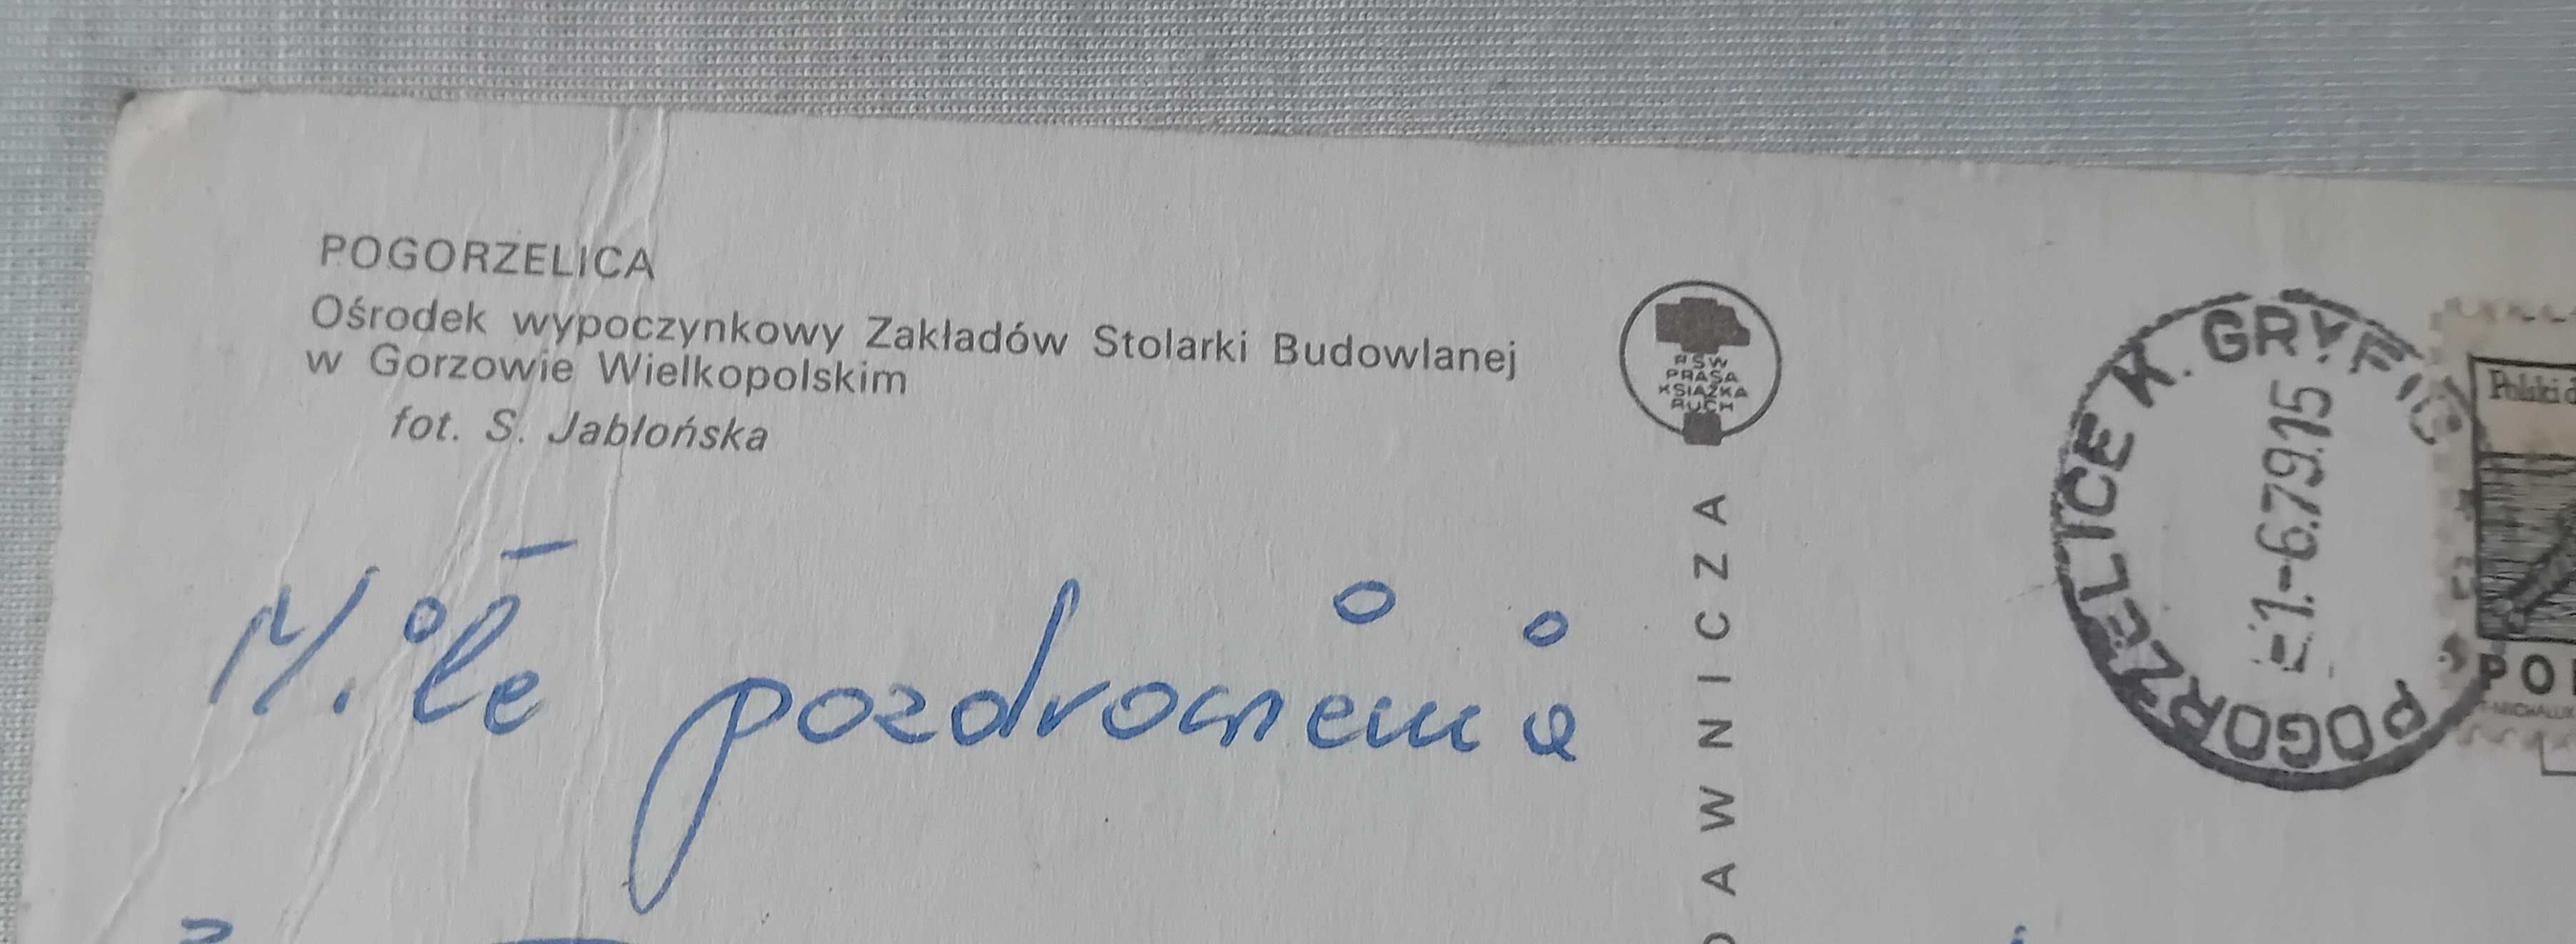 POGORZELICA
Ośrodek wypoczynkowy Zakładów Stolarki Budowlanej
w Gorzowie Wielkopolskim
fot. S. Jabłońska
Miłe pozdrowienia
RSW
PRASA
KSIĄŻKA
RUCH
AWNICZA
POGORZELICE K. GRYFIC
1.-6.79.15
Polski
PO